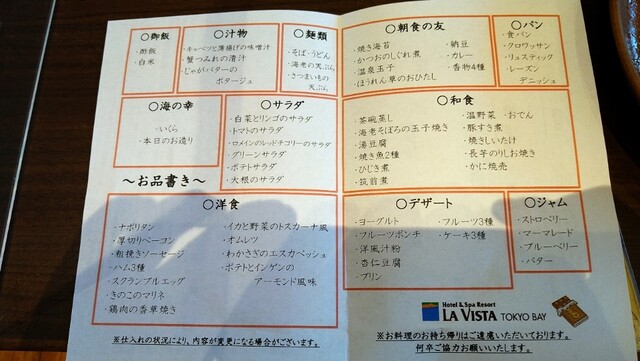 ○御飯
・酢飯
・白米
○汁物
・キャベツと薄揚げの味噌汁
・蟹つみれの漬汁
・じゃがバターの
ポタージュ
○麺類
・そば・うどん
・海老の天ぷら
・さつまいもの
天ぷら
○海の幸
・いくら
・本日のお造り
○サラダ
・白菜とリンゴのサラダ
・トマトのサラダ
・ロメインのレッドチコリーのサラダ
・グリーンサラダ
・ポテトサラダ
・大根のサラダ
～お品書き～
○洋食
・ナポリタン
・厚切りベーコン
・粗挽きソーセージ
・ハム3種
・スクランブルエッグ
・きのこのマリネ
・鶏肉の香草焼き
・イカと野菜のトスカーナ風
・オムレツ
・わかさぎのエスカベッシュ
・ポテトとインゲンの
アーモンド風味
※仕入れの状況により、内容が変更になる場合がございます。
○朝食の友
・焼き海苔
・かつおのしぐれ煮
・温泉玉子
・ほうれん草のおひたし
・納豆
・カレー
・香物4種
○パン
・食パン
・クロワッサン
・リュスティック
・レーズン
デニッシュ
○和食
・茶碗蒸し
・海老そぼろの玉子焼き
・湯豆腐
・焼き魚2種
・ひじき煮
・筑前煮
・温野菜 ・おでん
・豚すき煮
・焼きしいたけ
・長芋のりしお焼き
・かに焼売
○デザート
・ヨーグルト
・フルーツポンチ
・洋風汁粉
・杏仁豆腐
・プリン
・フルーツ3種
・ケーキ3種
○ジャム
・ストロベリー
・マーマレード
・ブルーベリー
・バター
Hotel & Spa Resort
LA VISTA TOKYO BAY
※お料理のお持ち帰りはご遠慮いただいております。
何卒ご協力お願いいたします。